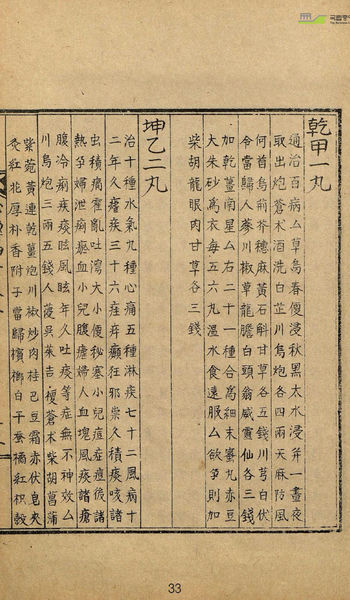 乾甲一丸
通治百病厶草烏春
取出炮蒼朮酒洗白芷川烏炮各四兩天麻防風
何首烏荊芥穗麻黃石斛甘草各五錢川芎白伏
令當歸人蔘川椒草龍膽白頭翁威靈仙各三錢
加乾薑南星厶右二十一種合爲細末蜜丸赤豆
大朱砂爲衣每五六丸溫水食遠服厶飮
柴胡龍眼肉甘草各三錢
坤乙二丸
治十種水氣九種心痛五種淋疾七十二風病十
二年久瘧疾三十六疰癲狂邪祟久積痰咳諸
虫積痛霍亂吐瀉大小便秘塞小兒後諸
熱婦泄痢瘀血小兒腹瘧婦人血塊風痰諸瘡
腹冷痢疾痰眩風眩年久吐痰等症無不神效厶
川烏炮三兩五錢人蔘吳茱吉梗蒼朮柴胡菖蒲
紫菀黃連乾薑炮川椒炒肉桂巴豆霜赤伏皂夾
灸紅花厚朴香附子當歸檳榔白干蚕橘紅枳殼
33